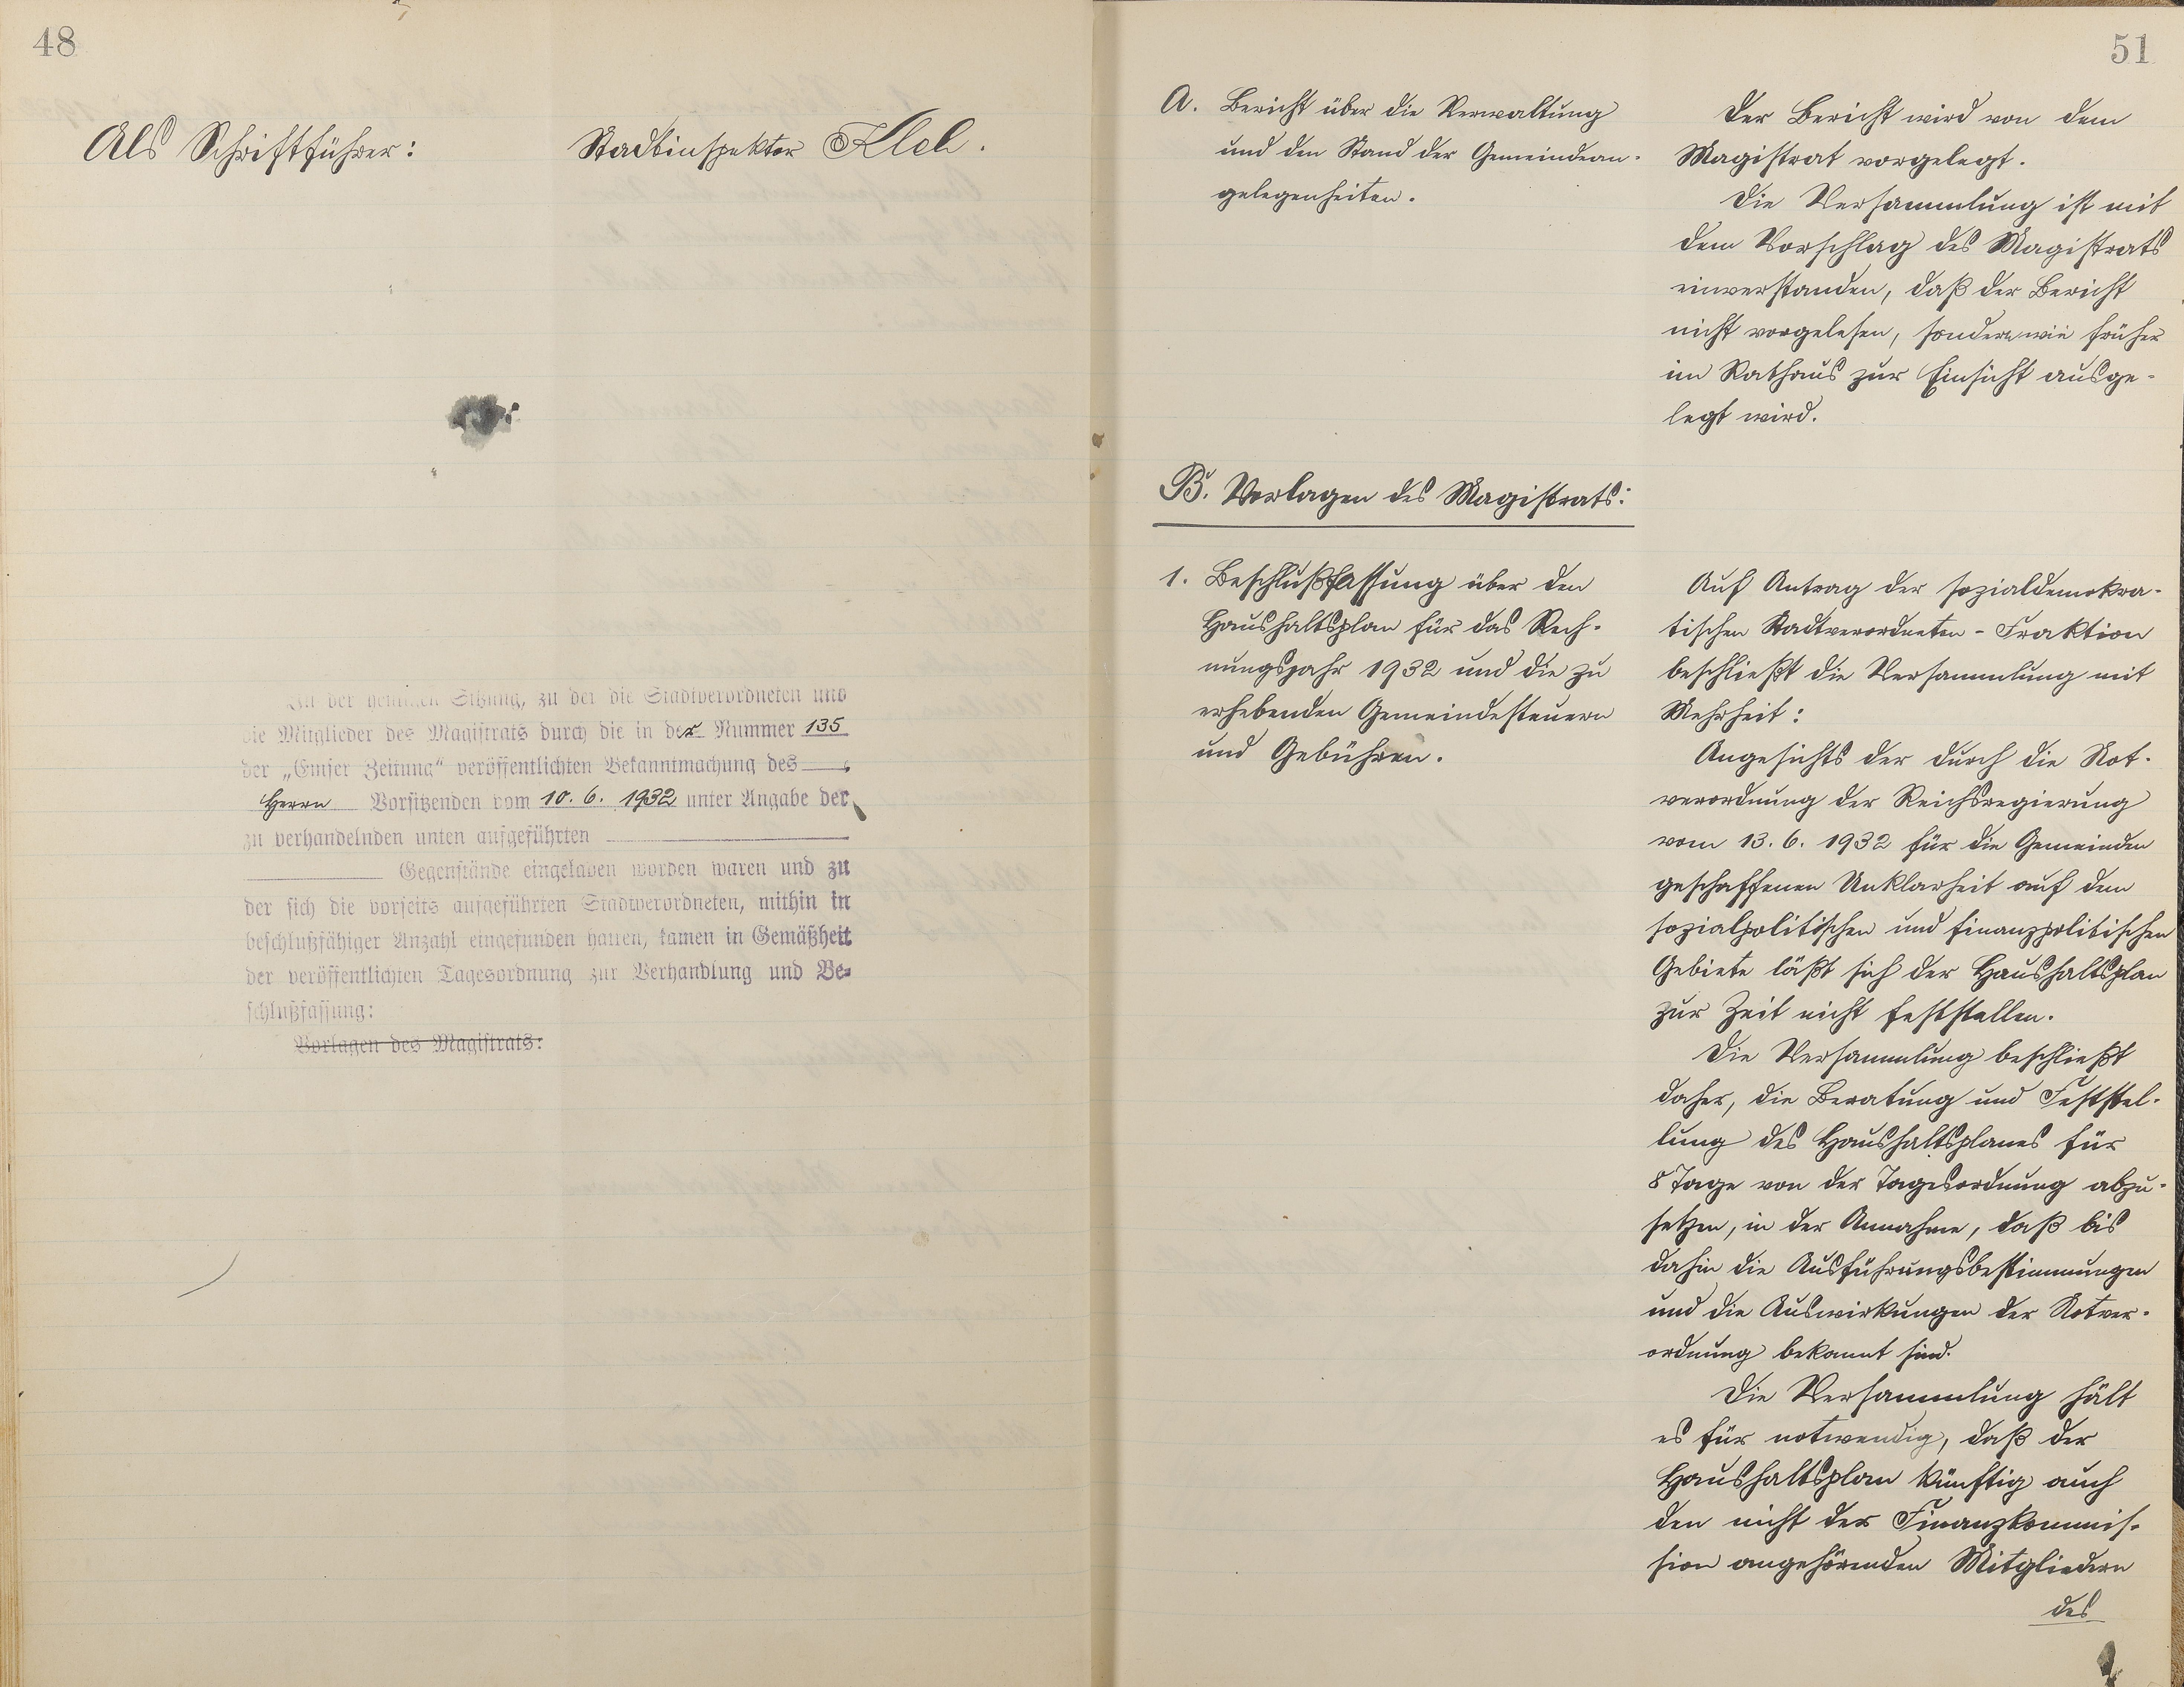 48
Als Schriftführer:
Stadtinspektor Kleh.
In der heutigen Sitzung, zu der die Stadtverordneten und
die Mitglieder des Magistrats durch die in der Nummer 135
der „Emser Zeitung" veröffentlichten Bekanntmachung des
Herrn Vorsitzenden vom 10. 6. 1932 unter Angabe der
zu verhandelnden unten aufgeführten
Gegenstände eingeladen worden waren und zu
der sich die vorseits aufgeführten Stadtverordneten, mithin in
beschlußfähiger Anzahl eingefunden hatten, kamen in Gemäßheit
der veröffentlichten Tagesordnung zur Verhandlung und Be-
schlußfassung:
Vorlagen des Magistrats:
51
A. Bericht über die Verwaltung
und den Stand der Gemeindean-
gelegenheiten.
Der Bericht wird von dem
Magistrat vorgelegt.
Die Versammlung ist mit
dem Vorschlag des Magistrats
einverstanden, daß der Bericht
nicht vorgelesen, sondern wie früher
im Rathaus zur Einsicht ausge-
legt wird.
B. Vorlagen des Magistrats:
1. Beschlußfassung über den
Haushaltsplan für das Rech-
nungsjahr 1932 und die zu
erhebenden Gemeindesteuern
und Gebühren.
Auf Antrag der sozialdemokra-
tischen Stadtverordneten-Fraktion
beschließt die Versammlung mit
Mehrheit:
Angesichts der durch die Not-
verordnung der Reichsregierung
vom 13. 6. 1932 für die Gemeinden
geschaffenen Unklarheit auf dem
sozialpolitischen und finanzpolitischen
Gebiete läßt sich der Haushaltsplan
zur Zeit nicht feststellen.
Die Versammlung beschließt
daher, die Beratung und Feststel-
lung des Haushaltsplanes für
8 Tage von der Tagesordnung abzu-
setzen, in der Annahme, daß bis
dahin die Ausführungsbestimmungen
und die Auswirkungen der Notver-
ordnung bekannt sind.
Die Versammlung hält
es für notwendig, daß der
Haushaltsplan künftig auch
den nicht der Finanzkommis-
sion angehörenden Mitgliedern
des